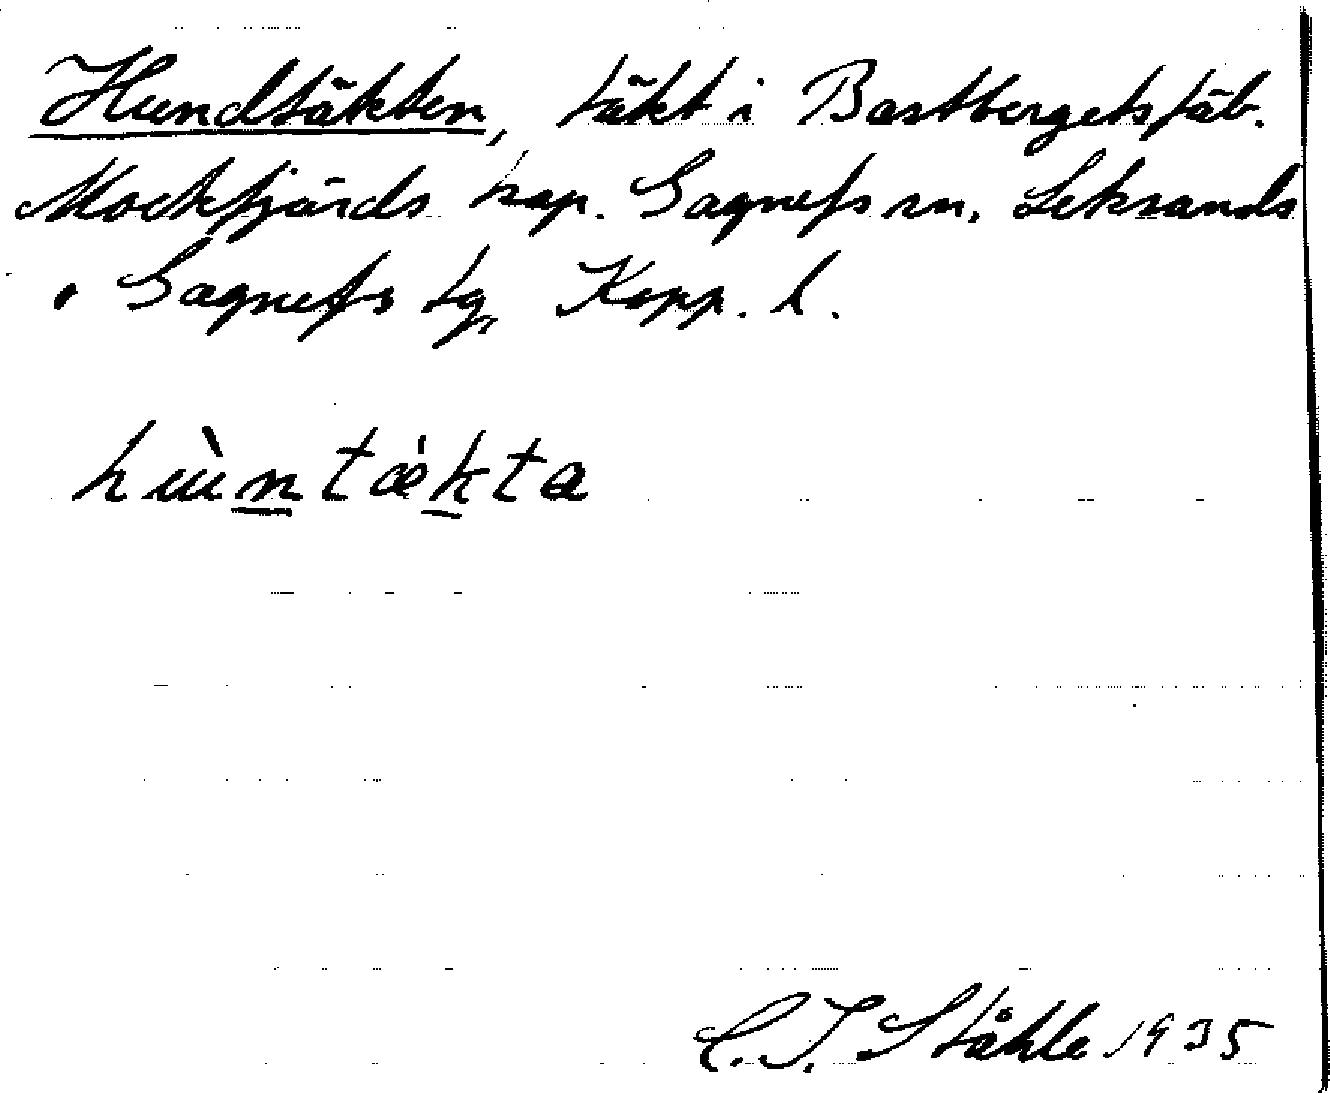 Hundtäkten, täkt i Bastbergets fäb.
Mockfjärds kap. Gagnefs sn, Leksands
o Gagnefs tg, Kopp. l.
hùntækta
C. I. Ståhle 1935